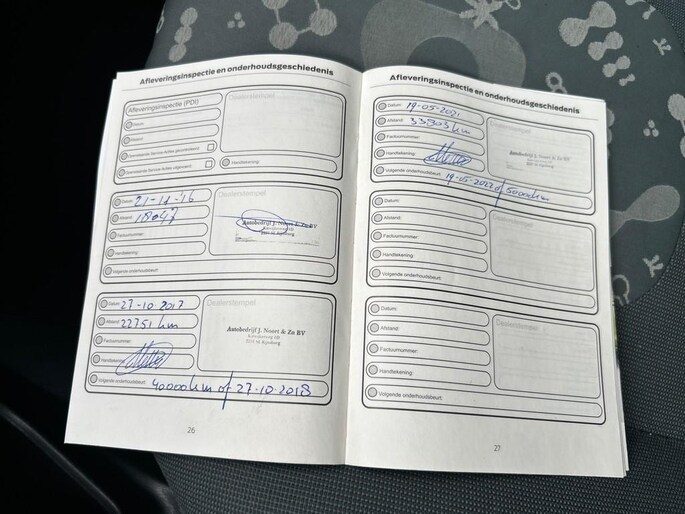 Afleveringsinspectie en onderhoudsgeschiedenis
Afleveringsinspectie (PDI)
Dealerstempel
Datum:
Handtekening:
Dealerstempel
Datum: 21-11-16
Afstand: 18047
Factuurnummer:
Autobedrijf J. Noort & Zn BV
Handtekening:
Volgende onderhoudsbeurt:
Dealerstempel
Datum: 27-10-2017
Afstand: 22751 km
Factuurnummer:
Autobedrijf J. Noort & Zn BV
Handtekening:
Volgende onderhoudsbeurt: 40000 km of 27-10-2018
26
Afleveringsinspectie en onderhoudsgeschiedenis
Datum: 19-05-2021
Afstand: 33303 km
Factuurnummer:
Autobedrijf J. Noort & Zn BV
Handtekening:
Volgende onderhoudsbeurt: 19-05-2022 of 50000km
Dealerstempel
Datum:
Afstand:
Factuurnummer:
Handtekening:
Volgende onderhoudsbeurt:
Dealerstempel
Datum:
Afstand:
Factuurnummer:
Handtekening:
Volgende onderhoudsbeurt:
27